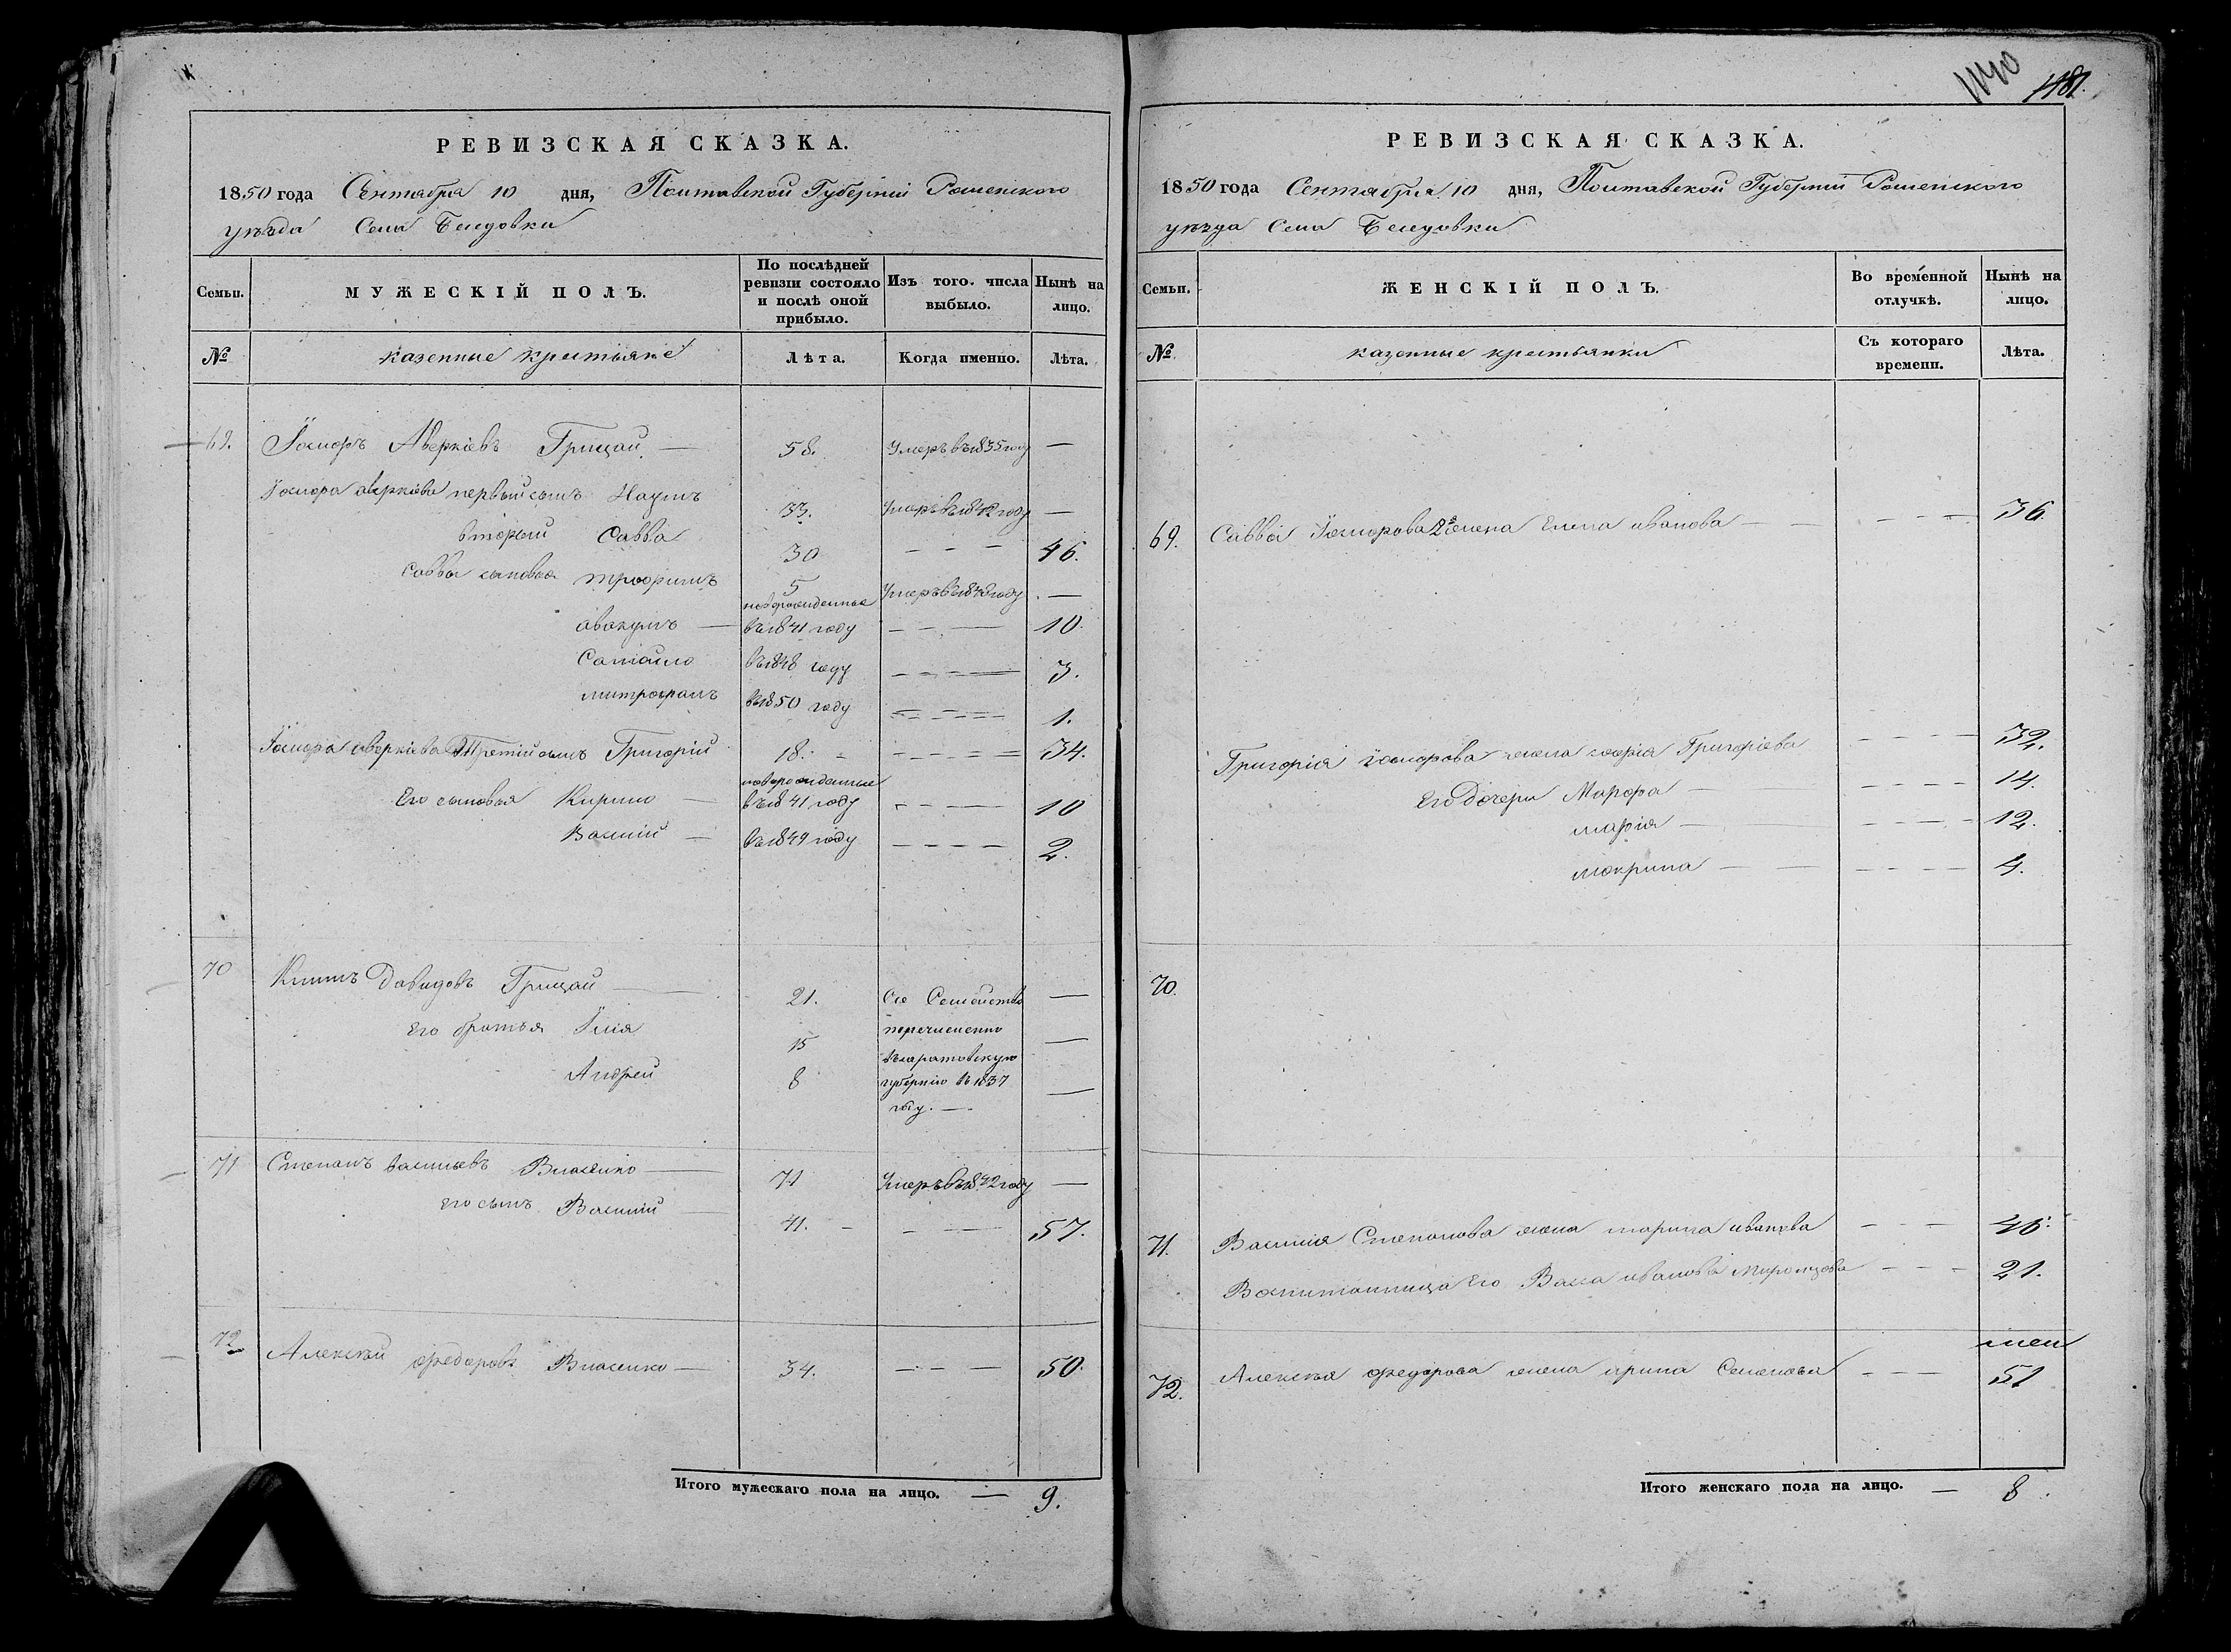 1481.
РЕВИЗСКАЯ СКАЗКА.
1850 года Сентября 10 дня, Полтавской Губерніи Роменского
уѣзда Села Беседовки
Семьи.
МУЖЕСКІЙ ПОЛЪ.
По послѣдней ревизіи состояло и послѣ оной прибыло.
Изъ того числа выбыло.
Нынѣ на лицо.
№
казенные крестьяне
Лѣта.
Когда именно.
Лѣта.
69. Іосифъ Аверкіевъ Грицай — 58. Умеръ въ 1835 году —
Іосифа аверкіева первый сынъ Наумъ 33. Умеръ въ 1842 году —
вторый Савва 30 — — — 46.
Саввы сыновья трофимъ 5 Умеръ въ 1843 году —
новорожденные
авакумъ — въ 1841 году — — — 10.
Самойло въ 1848 году — — — 3.
митрофанъ въ 1850 году — — — 1.
Іосифа аверкіева Третій сынъ Григорій 18. — — — 34.
новорожденные
Его сыновья Кирило — въ 1841 году — — — 10
Василій — въ 1849 году — — — — 2.
70 Климъ Давидовъ Грицай — 21. Сіе Семейство —
Его братья Илія 15 перечислено —
въ саратовскую
Андрей 8 губернію въ 1837 —
году. —
71 Степанъ васильевъ Власенко — 71 Умеръ въ 1842 году —
его сынъ Василій — 41. — — — 57.
72 Алексѣй федоровъ Власенко — 34. — — — 50.
Итого мужескаго пола на лицо. — 9.
РЕВИЗСКАЯ СКАЗКА.
1850 года Сентября 10 дня, Полтавской Губерніи Роменского
уѣзда Села Беседовки
Семьи.
ЖЕНСКІЙ ПОЛЪ.
Во временной отлучкѣ.
Нынѣ на лицо.
№
казенные крестьянки
Съ котораго времени.
Лѣта.
69. Саввы Іосифова 2я жена Елена иванова — — — — 36.
Григорія іосифова жена софія Григорієва — — — — 32.
Его дочери Марфа — — — — 14.
марія — — — — 12.
мокрина — — — — 4.
70.
71. Василія Степанова жена марина иванова — — — 46.
Воспитанница его Васса иванова — — — 21.
72. Алексѣя федорова жена ирина Семенова — — — 51
Итого женскаго пола на лицо. — 8.